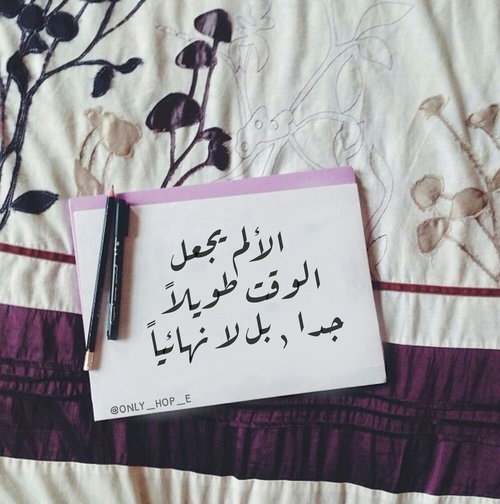 الألم يجعل
الوقت طويلاً
جدا , بل لا نهائياً
@ONLY_HOP_E